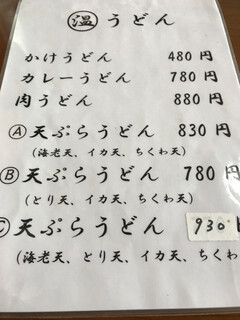 温 うどん
かけうどん 480円
カレーうどん 780円
肉うどん 880円
Ⓐ天ぷらうどん 830円
(海老天、イカ天、ちくわ天)
Ⓑ天ぷらうどん 780円
(とり天、イカ天、ちくわ天)
Ⓒ天ぷらうどん 930円
(海老天、とり天、イカ天、ちくわ